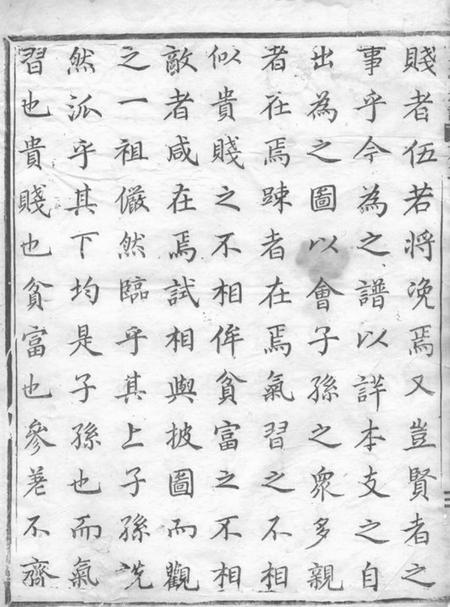 賤者伍若將浼焉又豈賢者之
事乎今為之譜以詳本支之自
出為之圖以會子孫之衆多親
者在焉踈者在焉氣習之不相
似貴賤之不相侔貧富之不相
敵者咸在焉試相與披圖而觀
之一祖儼然臨乎其上子孫詵
然泒乎其下均是子孫也而氣
習也貴賤也貧富也參差不齊